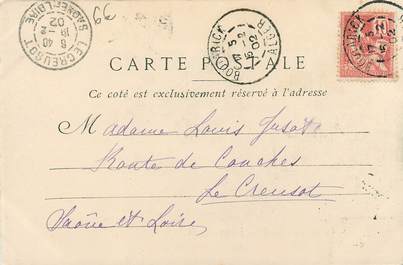 99
LE CREUSOT
8 40
19 - 2
02
SAONE-ET-LOIRE
BOU-TRICK
5
15 - 2
02
ALGER
BOU-TRICK
CARTE POSTALE
Ce côté est exclusivement réservé à l'adresse
Madame Louis
Route de Couches
Le Creusot
Saône et Loire